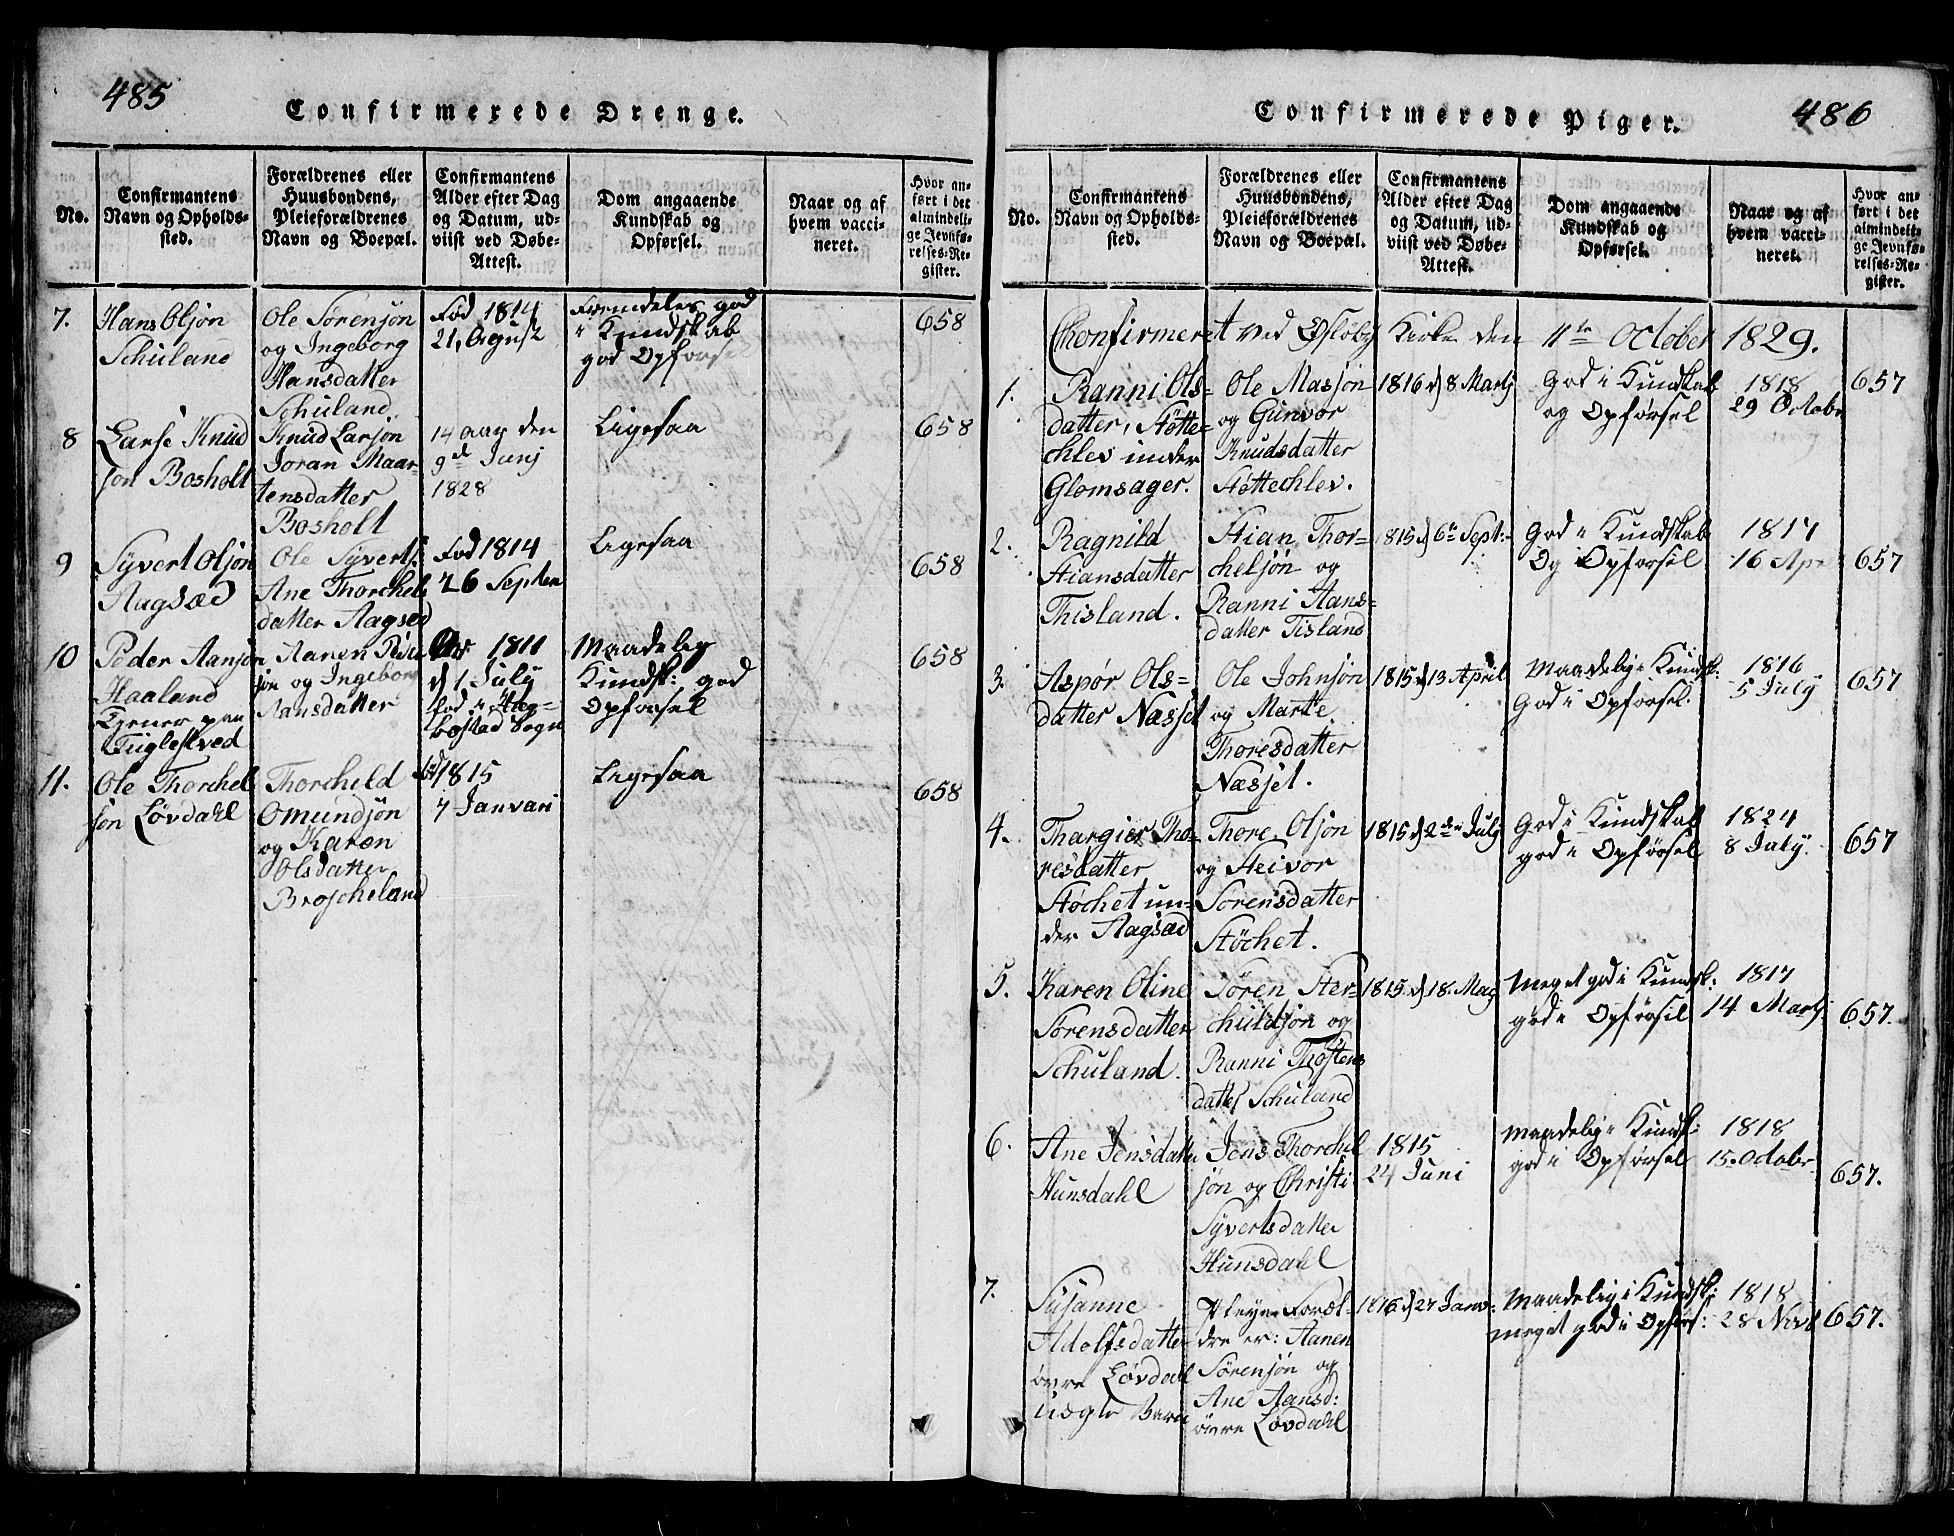 485
Confirmerede Drenge.
No.
Confirmantens
Navn og Opholds-
sted.
Forældrenes eller
Huusbondens,
Pleieforældrenes
Navn og Boepæl.
Confirmantens
Alder efter Dag
og Datum, ud-
viist ved Døbe-
Attest.
Dom angaaende
Kundskab og
Opførsel.
Naar og af
hvem vacci-
neret.
Hvor an-
ført i det
almindeli-
ge Jevnfø-
relses-Re-
gister.
7.
Hans Olsøn
Schuland
Ole Sørensøn
og Ingeborg
Hansdatter
Schuland.
Fød 1814
21, Agust
Fremdeles god
i Kundskab
god Opførsel
658
8
Larse Knud
søn Bosholt
Knud Larsøn
Joran Maar-
tensdatter
Bosholt
14 aar den
9de Junj
1828
Ligesaa
658
9
Syvert Olsøn
Aagsæd
Ole Syverts
Ane Thorchels
datter Aagsed
Fod 1814
26 Septem
Ligesaa
658
10
Peder Aansøn
Haaland
Tjener paa
Fuglestved
Aanen Peder
søn og Ingeborg
Aansdatter
1811
d 1 July
fød i Hæg-
bostad Sogn
Maadelig
Kundsk: god
Opførsel
658
11.
Ole Thorchel
søn Løvdahl
Thorcheld
Omundsøn
og Karen
Olsdatter
Broscheland
1815
7 Januari
Ligesaa
658
486
Confirmerede Piger.
No.
Confirmantens
Navn og Opholds-
sted.
Forældrenes eller
Huusbondens,
Pleieforældrenes
Navn og Boepæl.
Confirmantens
Alder efter Dag
og Datum, ud-
viist ved Døbe-
Attest.
Dom angaaende
Kundskab og
Opførsel.
Naar og af
hvem vacci-
neret.
Hvor an-
ført i det
almindeli-
ge Jevnfø-
relses-Re-
gister.
Chonfirmeret ved Øsløby Kirke den 11te October 1829.
1.
Ranni Ols-
datter, Støtte-
chlev under
Glomsager.
Ole Masjøn
og Gunvor
Knudsdatter
Støttechlev.
1816 d 8 Martj
God i Kundskab
og Opførsel
1818
29 Octobr
657
2.
Ragnild
Stiansdatter
Thisland.
Stian Thor-
cheljøn og
Ranni Aans-
datter Tisland
1815 d 6te Sept:
God i Kundskab
Og Opførsel
1817
16 Apr
657
3.
Aspør Ols-
datter Næsset
Ole Johnsøn
og Marte
Thoresdatter
Næsset.
1815 d 13 April
Maadelig i Kundsk:
God i Opførsel.
1816
5 July
657
4.
Thargier Tho-
resdatter
Støchet un-
der Aagsæd
Thore Olsøn
og Steivor
Sørensdatter
Støchet.
1815 d 2den July
God i Kundskab
god i Opførsel
1824
8 July.
657
5.
Karen Oline
Sørensdatter
Schuland.
Søren Ster-
chuldsøn og
Ranni Thostens
datter Schuland
1815 d 18. May
Meget god i Kundsk:
god i Opførsel
1817
14 Martj
657.
6.
Ane Jensdatter
Hunsdahl
Jens Thorchel
søn og Christi
Syvertsdatter
Hunsdahl
1815
24 Juni
Maadelig i Kundsk:
god i Opførsel
1818
15. Octobr
657.
7.
Susanne
Adolfsdatter
øvre Løvdahl
Uægte Barn
Pleye Foræl-
dre er: Aanen
Sørensøn og
Ane Aansd:
øvre Løvdahl
1816 d 27 Janv:
Maadelig i Kundsk:
meget god i Opførs:
1818
28 Novb
657.